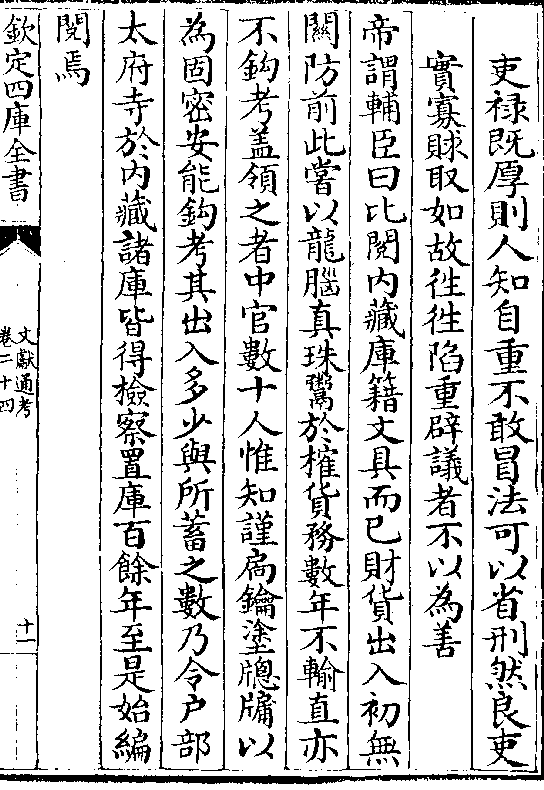 吏禄既厚則人知自重不敢冒法可以省刑然良吏
實寡賕取如故徃徃陷重辟議者不以為善
帝謂輔臣曰比閱内藏庫籍文具而已財貨出入初無
關防前此嘗以龍腦真珠鬻於榷貨務數年不輸直亦
不鈎考盖領之者中官數十人惟知謹扄鑰塗牕牖以
為固密安能鈎考其出入多少與所蓄之數乃令户部
太府寺於内藏諸庫皆得檢察置庫百餘年至是始編
閱焉
欽定四庫全書
文獻通考
卷二十四
十一